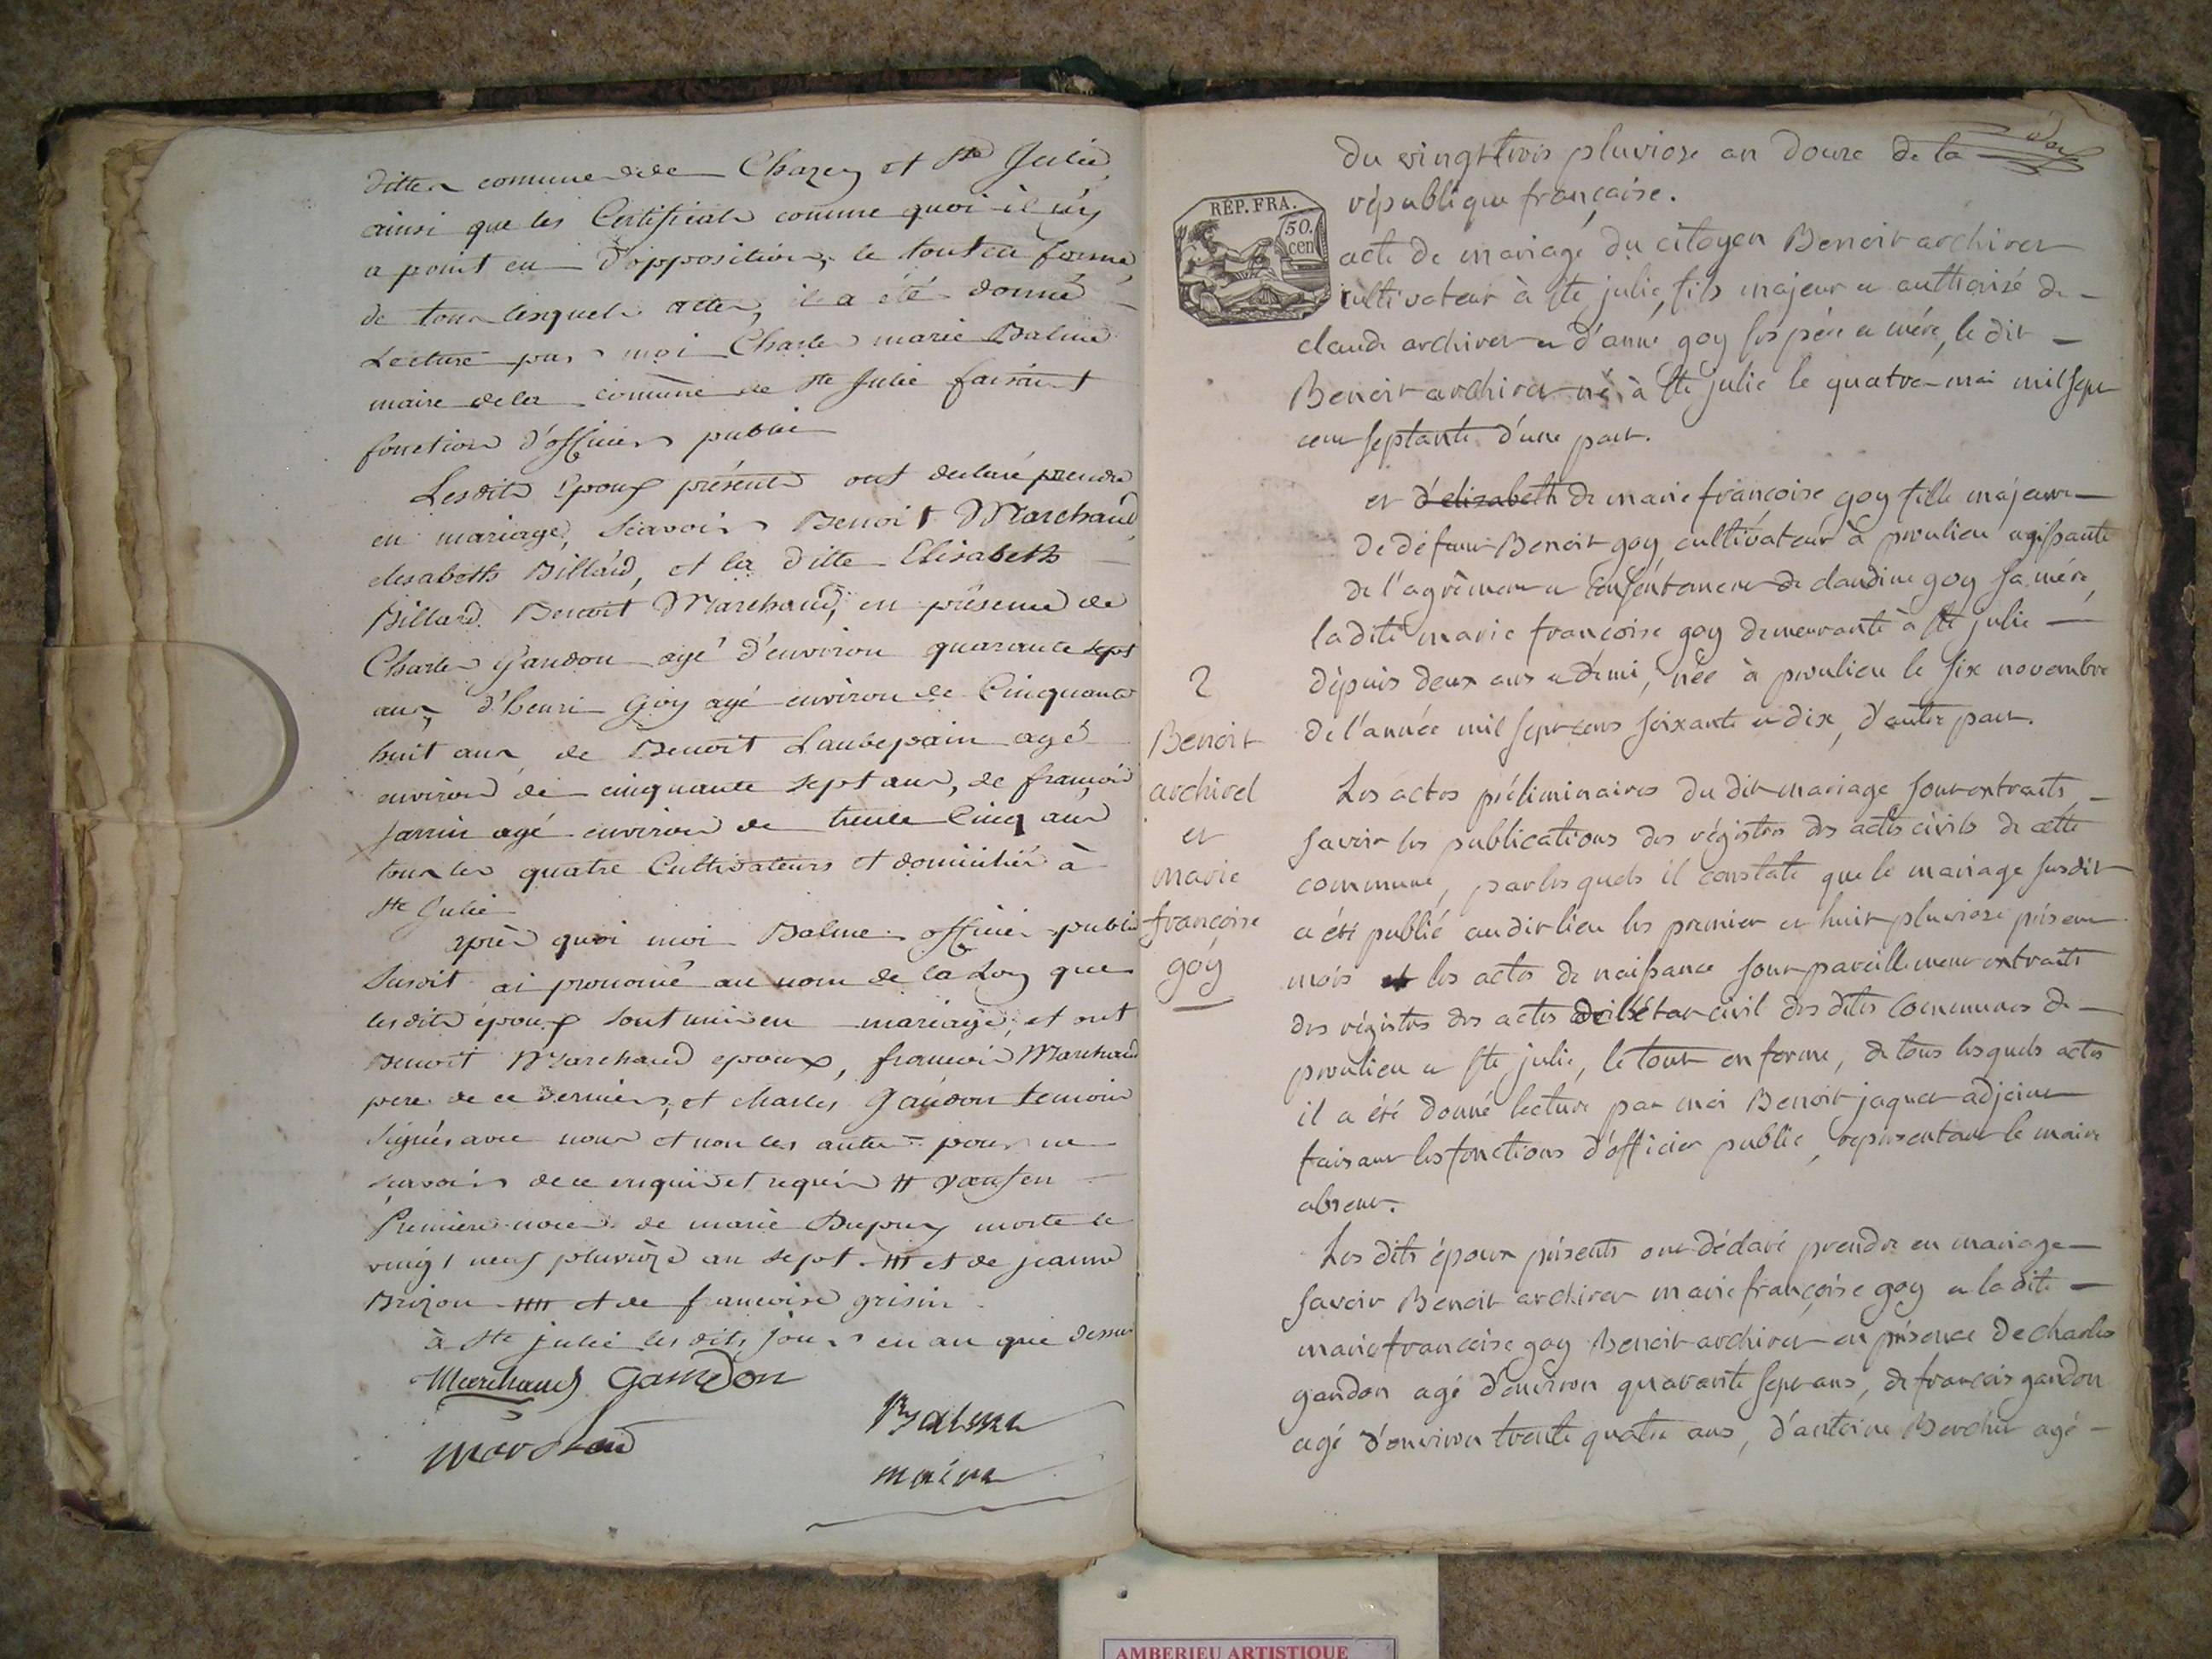 dittes commune de Chazey et Ste Julie
ainsi que les Certificats comme quoi il n'y
a point eu d'opposition, le tout en forme,
de tous lesquels actes, il a été donné
Lecture par moi Charles marie Balme
maire de la comune de Ste Julie faisant
fonction d'officier public
Lesdits Epoux présents ont declaré prendre
en mariage, scavoir Benoit Marchand
elisabeth Billard, et la ditte Elisabeth
Billard Benoit Marchand, en présence de
Charles Gandon agé d'environ quarante sept
ans, d'henri Goy agé environ de Cinquante
huit ans de Benoit Laubepain agé
environ de cinquante sept ans, de françois
Janin agé environ de trente Cinq ans
tous les quatre Cultivateurs et domiciliés à
Ste Julie
après quoi moi Balme officier public
susdit ai prononcé au nom de la Loy que
lesdits époux sont unis en mariage, et ont
Benoit Marchand epoux, francois Marchand
pere de ce dernier, et charles Gandon temoins
signés avec nous et non les autres pour ne
scavoir de ce enquis et requis # veuf en
Premiere noces de marie Dupuy morte le
vingt neuf pluvioze an sept ## et de jeanne
Brizon ### et de francoise grisin
à Ste julie les dits jours en an que dessus
Marchand Gandon
Marchand
Balme
maire
2
Benoit
archirel
et
marie
françoise
goy
REP. FRA.
50.
cen
du vingt trois pluviose an douze de la
république française.
acte de mariage du citoyen Benoit archirel
cultivateur à ste julie, fils majeur et authorisé de
claude archirel et d'anne goy ses père et mère, le dit
Benoit archirel né à ste julie le quatre mai mil sept
cent septante d'une part.
et d'elizabeth de marie françoise goy fille majeure
de défunt Benoit goy cultivateur à proulieu agissante
de l'agrèment et consentement de claudine goy sa mère,
la dite marie françoise goy demeurante à ste julie
dépuis deux ans et demi, née à proulieu le six novembre
de l'année mil sept cens soixante et dix, d'autre part.
Les actes préliminaires du dit mariage sont extraits
savoir les publications des régistres des actes civils de cette
commune, par lesquels il constate que le mariage susdit
a été publié au dit lieu les premier et huit pluviose présent
mois et les actes de naissance sont pareillement extraits
des régistres des actes de l'état civil des dites communes de
proulieu et ste julie, le tout en forme, de tous lesquels actes
il a été donné lecture par moi Benoit jaquet adjoint
faisant les fonctions d'officier public, représentant le maire
absent.
Les dits époux présents ont déclaré prendre en mariage
savoir Benoit archirel marie françoise goy et la dite
marie françoise goy Benoit archirel en présence de charles
gandon agé d'environ quarante sept ans, de françois gandon
agé d'environ trente quatre ans, d'antoine Berchet agé
AMBERIEU ARTISTIQUE